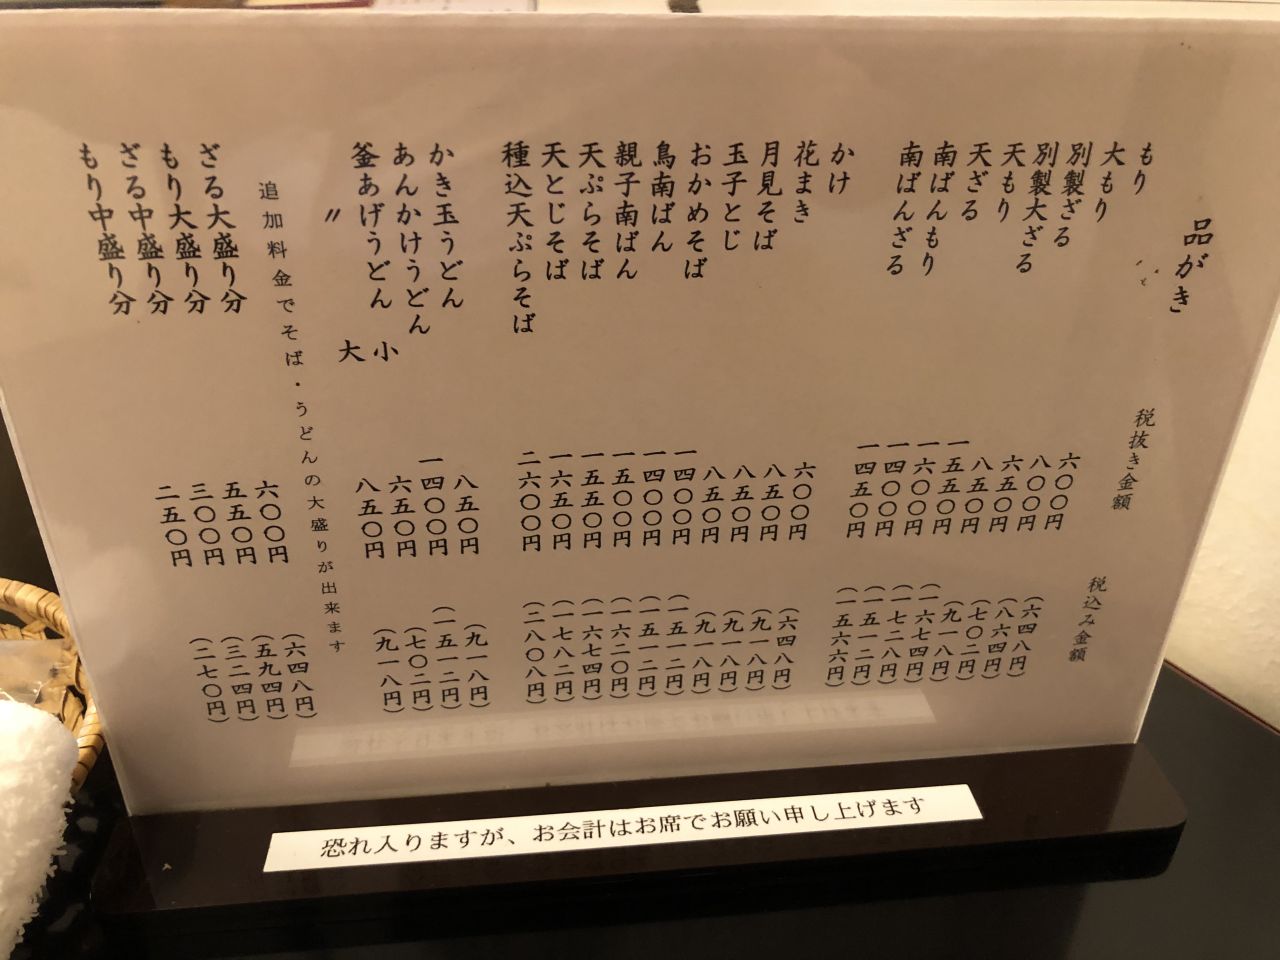 品がき　税抜き金額　税込み金額
もり　六〇〇円　（六四八円）
大もり　八〇〇円　（八六四円）
別製ざる　六五〇円　（七〇二円）
別製大ざる　八五〇円　（九一八円）
天もり　一五五〇円　（一六七四円）
天ざる　一六〇〇円　（一七二八円）
南ばんもり　一四〇〇円　（一五一二円）
南ばんざる　一四五〇円　（一五六六円）
かけ　六〇〇円　（六四八円）
花まき　八五〇円　（九一八円）
月見そば　八五〇円　（九一八円）
玉子とじ　八五〇円　（九一八円）
おかめそば　一四〇〇円　（一五一二円）
鳥南ばん　一四〇〇円　（一五一二円）
親子南ばん　一五〇〇円　（一六二〇円）
天ぷらそば　一五五〇円　（一六七四円）
天とじそば　一六五〇円　（一七八二円）
種込天ぷらそば　二六〇〇円　（二八〇八円）
かき玉うどん　八五〇円　（九一八円）
あんかけうどん　一四〇〇円　（一五一二円）
釜あげうどん　小　六五〇円　（七〇二円）
〃　大　八五〇円　（九一八円）
追加料金でそば・うどんの大盛りが出来ます
ざる大盛り分　六〇〇円　（六四八円）
もり大盛り分　五五〇円　（五九四円）
ざる中盛り分　三〇〇円　（三二四円）
もり中盛り分　二五〇円　（二七〇円）
恐れ入りますが、お会計はお席でお願い申し上げます